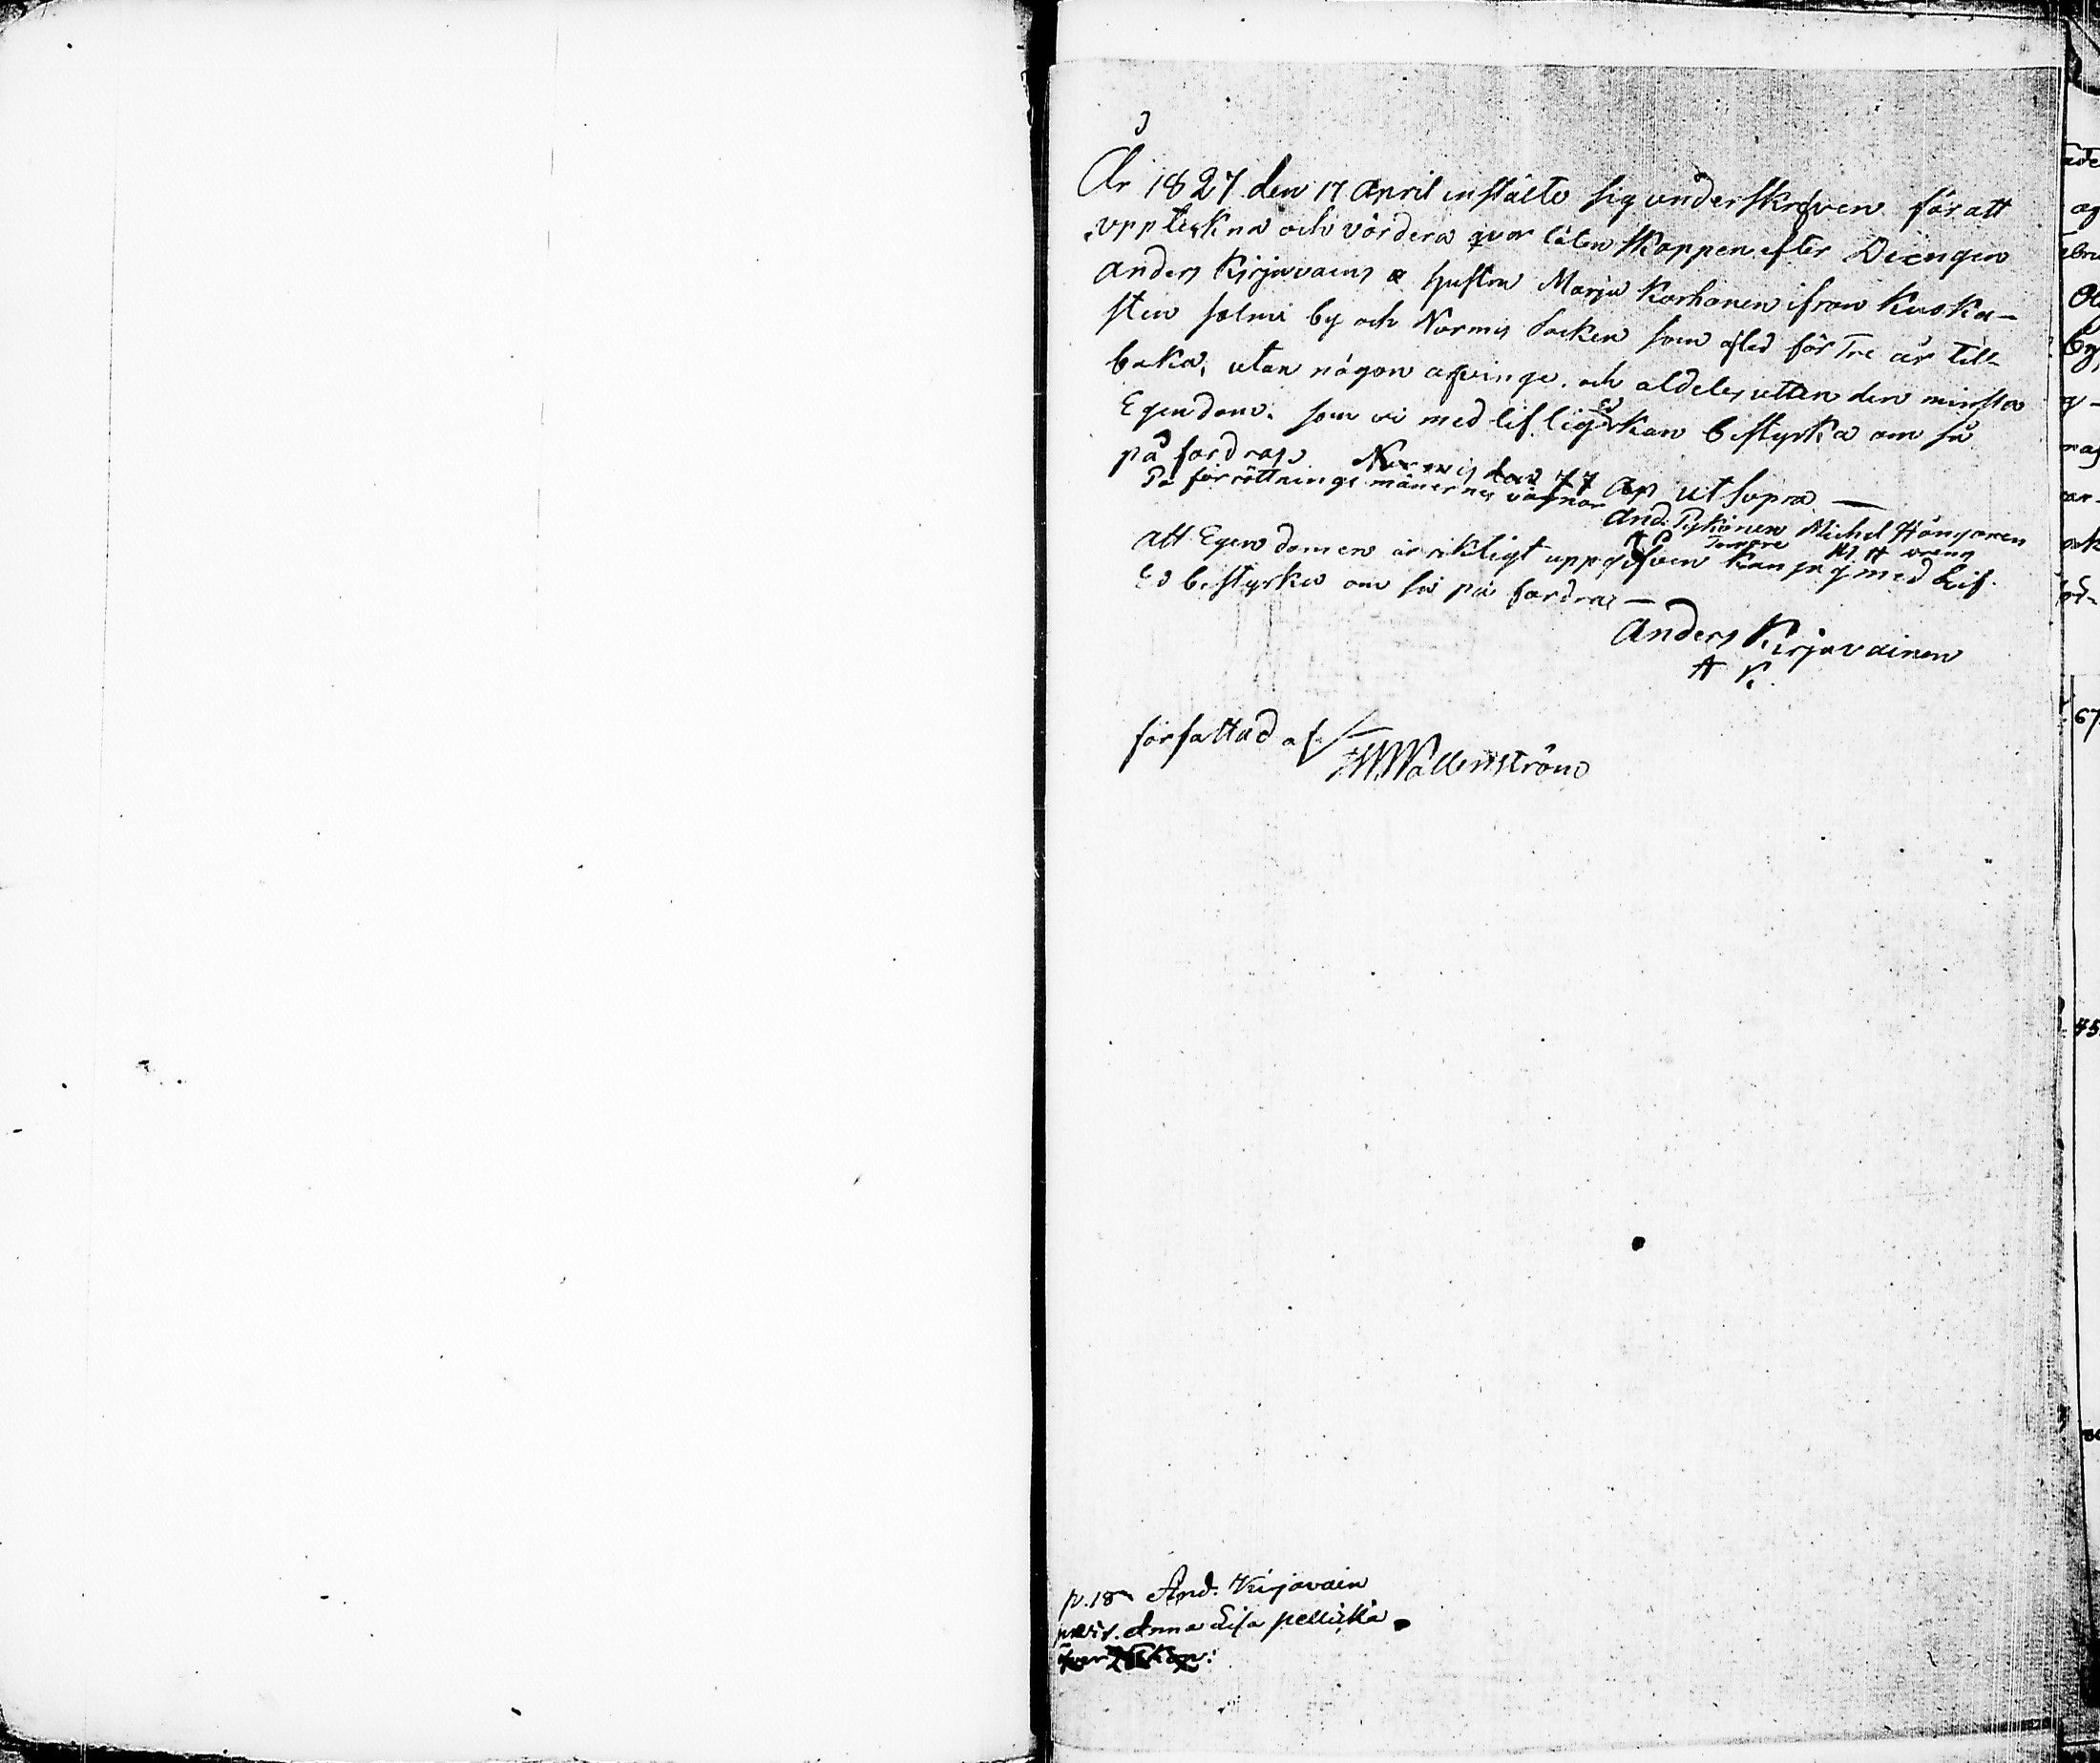 År 1827 den 17 April instälte sig underskrefven för att
uppteckna och värdera qvar låten skappen efter Drengen
Anders Kirjavains hustru Maria Korhonen ifrån Kuoka-
sten salmi by och Nurmis Socken som afled för Tre år till-
baka, utan någon arfvinge. och aldeles uttan den minsta
Egendom. som vi med liflig Ed kan bestyrka om så
på fordras Nurmis den 17 Ap ut supra —
På förrättnings mänernes vägnar
And. Pykönen Michel Hångonen
A P M H
Att Egendomen är riktigt uppgifven kan jag med Lif.
Ed bestyrka om så på fordras —
Anders Kirjavainen
A K.
författad af
Wallenström
p. 18 And. Kirjavain
Anna Lisa pellickä